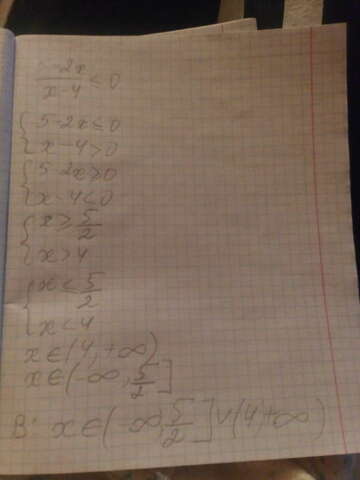 5-2x/x-4 ≤ 0
{5-2x≤0
{x-4>0
{5-2x≥0
{x-4<0
{x≥5/2
{x>4
{x≤5/2
{x<4
x∈(4,+∞)
x∈(-∞,5/2]
В: x∈(-∞,5/2]∨(4,+∞)